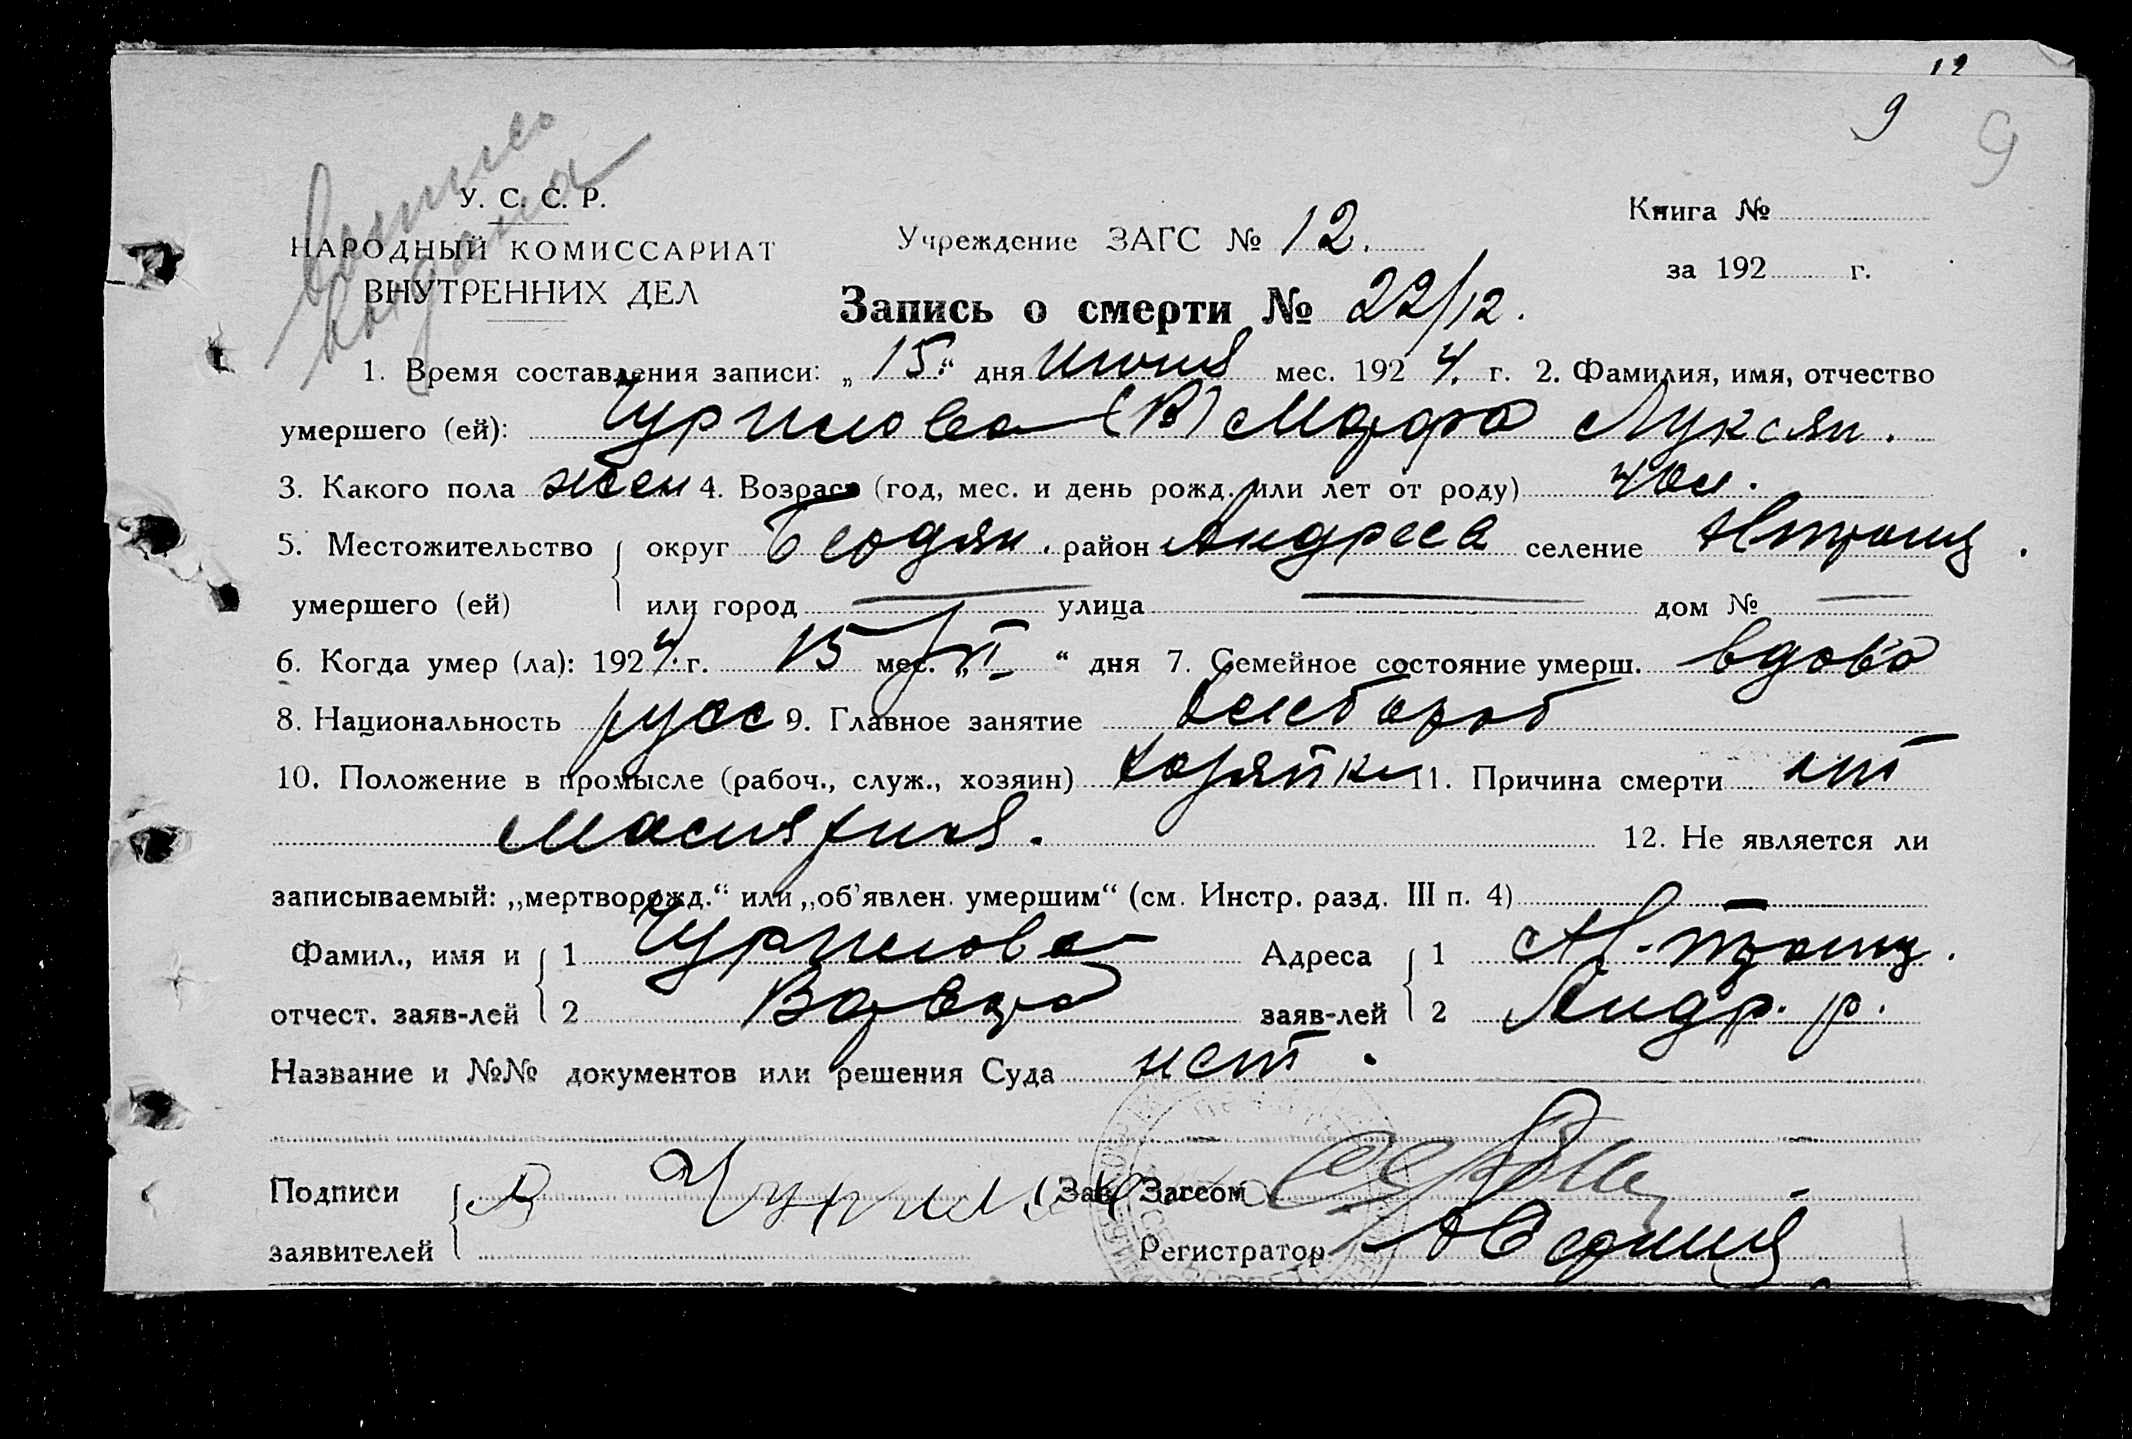 12
9 9
Выпись
выдана
У. С. С. Р.
НАРОДНЫЙ КОМИССАРИАТ
ВНУТРЕННИХ ДЕЛ
Учреждение ЗАГС № 12.
Книга №
за 192 г.
Запись о смерти № 22/12.
1. Время составления записи: „15“ дня Июня мес. 1924. г. 2. Фамилия, имя, отчество
умершего (ей): Чурилова (В) Марфа Лукян.
3. Какого пола жен 4. Возраст (год, мес. и день рожд. или лет от роду)
5. Местожительство округ район Андреев селение
умершего (ей) или город — улица — дом № —
6. Когда умер (ла): 1924. г. 15 мес. „VI“ дня 7. Семейное состояние умерш. вдова
8. Национальность русс 9. Главное занятие хлебороб
10. Положение в промысле (рабоч., служ., хозяин) хозяйка 11. Причина смерти
12. Не является ли
записываемый: „мертворожд.“ или „об'явлен. умершим“ (см. Инстр. разд. III п. 4) —
Фамил., имя и 1 Чурилова Адреса 1
отчест. заяв-лей 2 Варвара заяв-лей 2 Андр. р.
Название и №№ документов или решения Суда нет.
Подписи В Чурилова Зав. Загсом
заявителей Регистратор